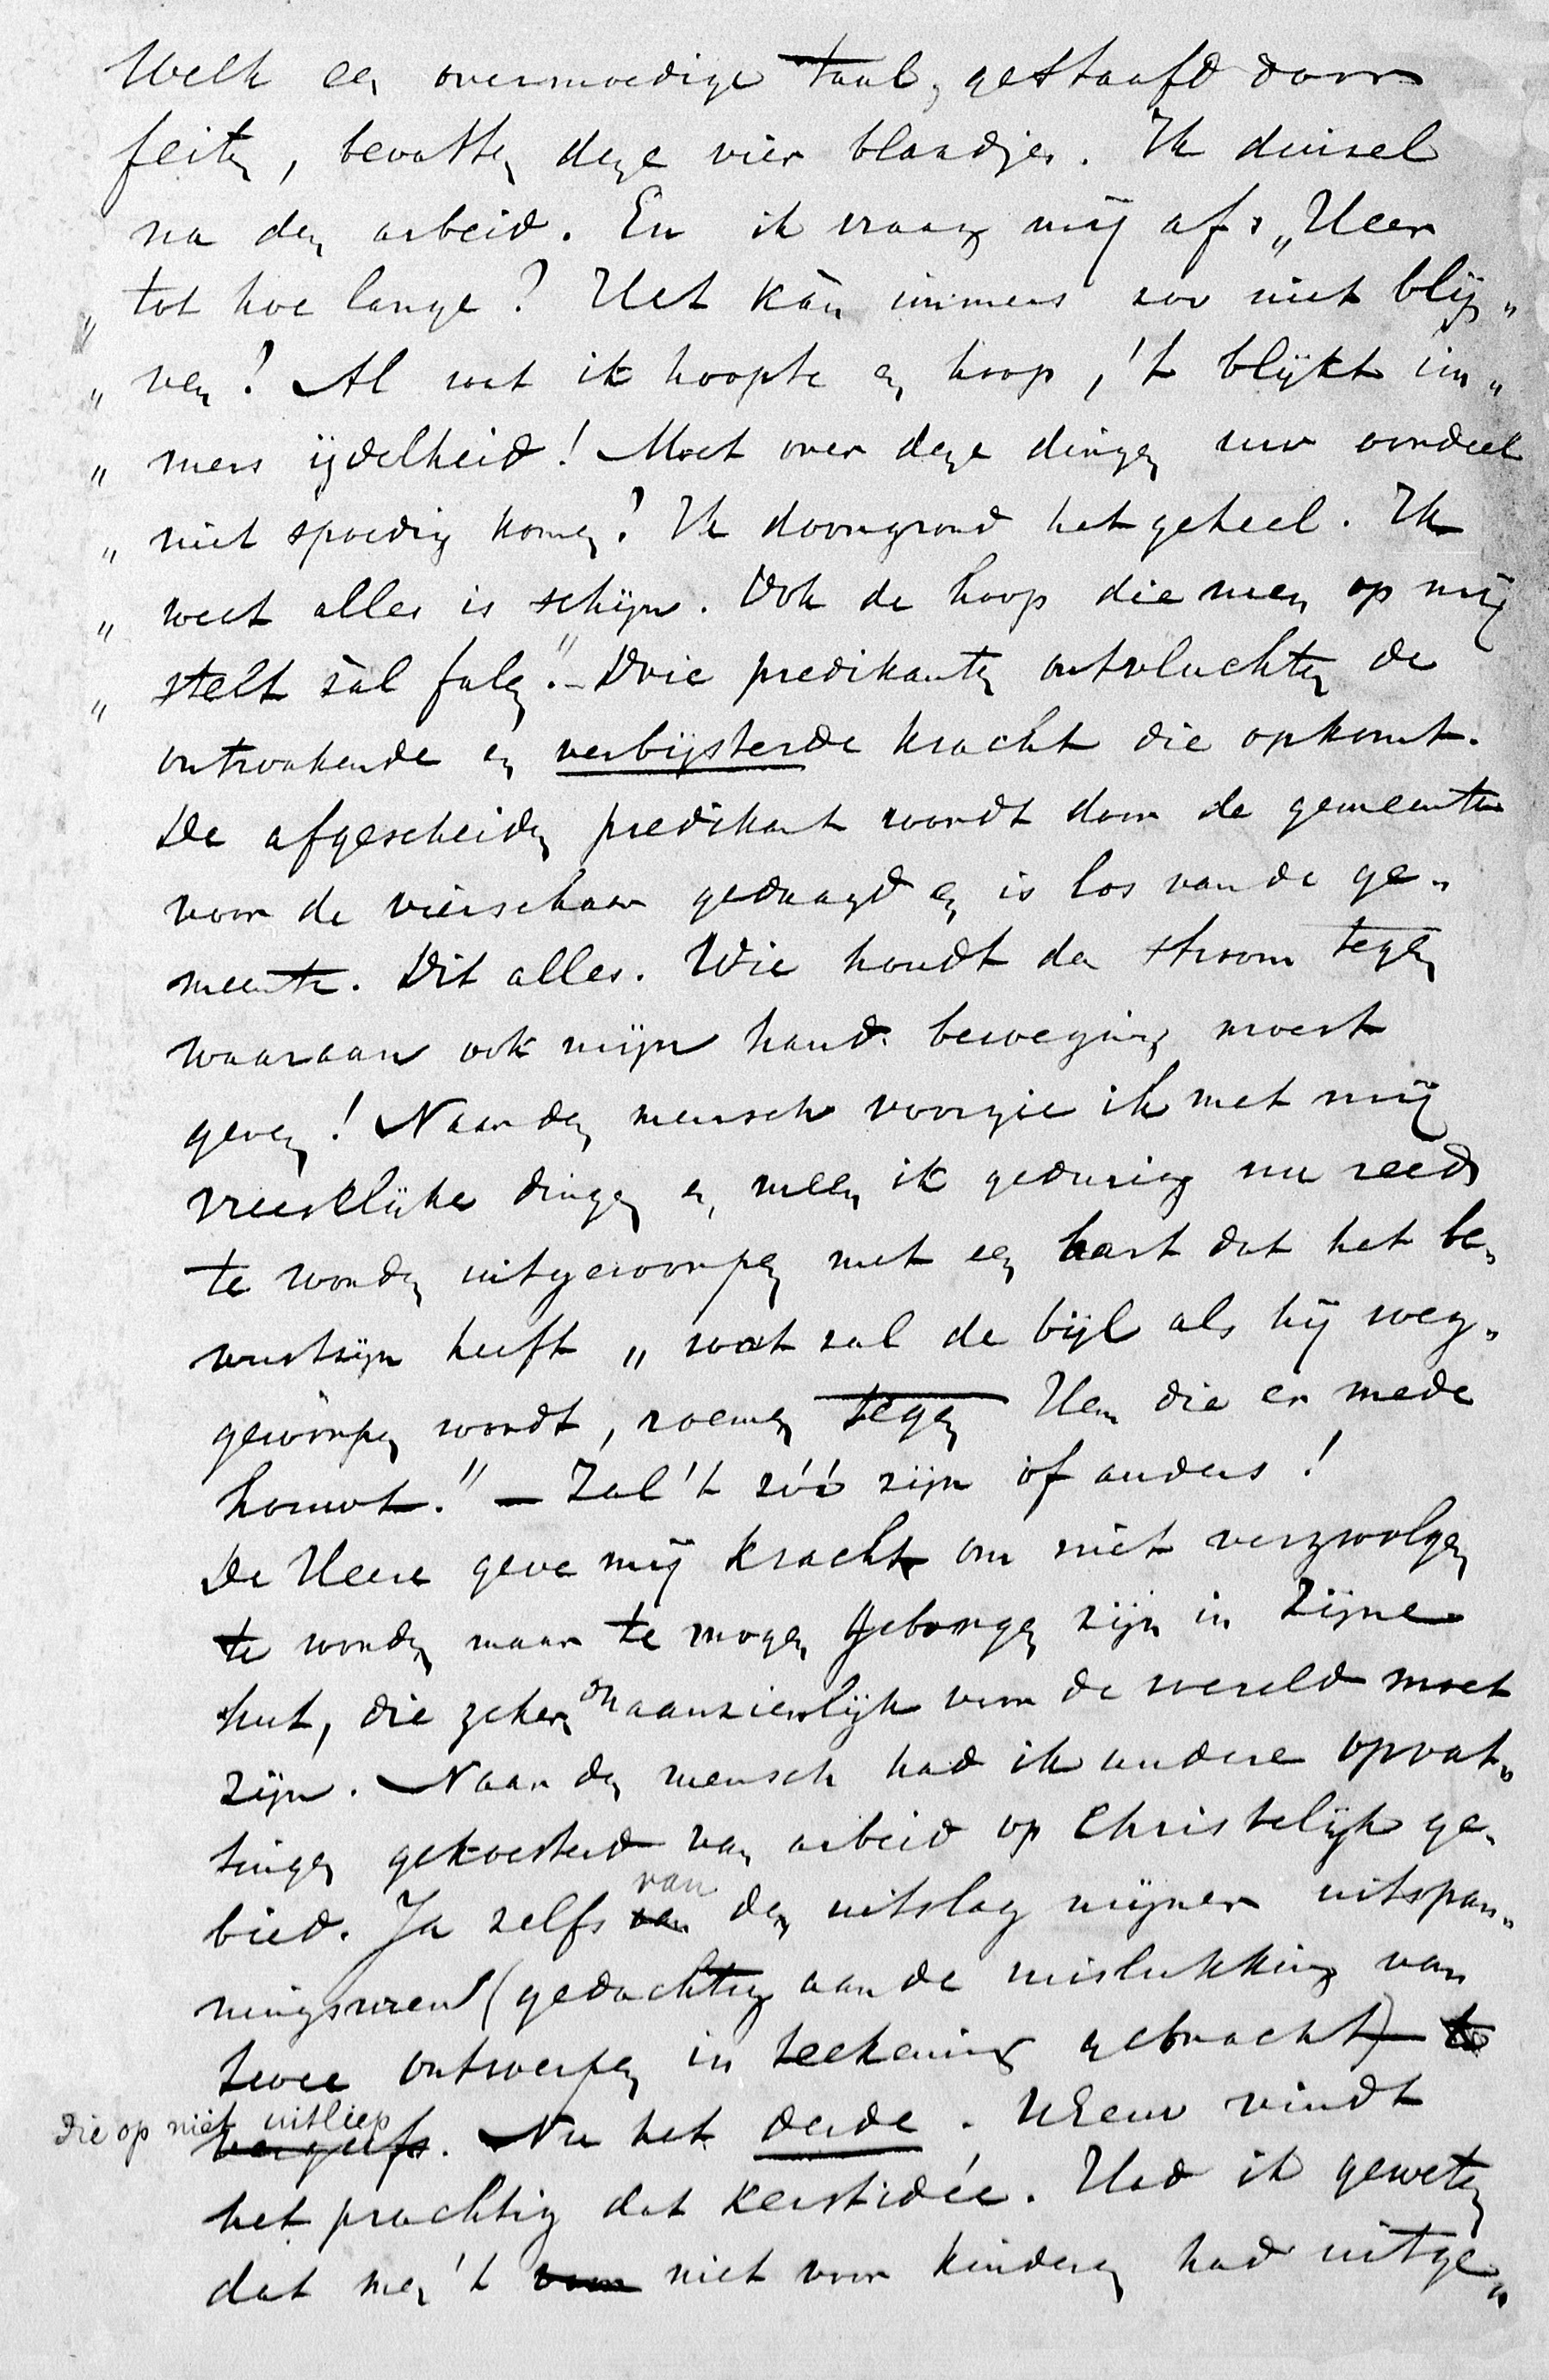 Welk een overmoedige taal, gestaafd door
feiten, bevatten deze vier blaadjes. Ik duizel
na den arbeid. En ik vraag mij af: „Heer
„ tot hoe lange? Het kàn immers zoo niet blij„
„ ven! Al wat ik hoopte en hoop, 't blijkt im„
„ mers ijdelheid! Moet over deze dingen uw oordeel
„ niet spoedig komen? Ik doorgrond het geheel. Ik
„ weet alles is schijn. Ook de hoop die men op mij
„ stelt zàl falen." – Drie predikanten ontvluchten de
ontwakende en verbijsterde kracht die opkomt.
De afgescheiden predikant wordt door de gemeente
voor de vierschaar gedaagd en is los van de ge„
meente. Dit alles. Wie houdt den stroom tegen
waaraan ook mijn hand beweging moest
geven! Naar den mensch voorzie ik met mij
vreeslijke dingen en meen ik gedurig nu reeds
te worden uitgeworpen met een hart dat het be„
wustzijn heeft „ wat zal de bijl als hij weg„
geworpen wordt, roemen tegen Hem die er mede
houwt." – Zal 't zóó zijn òf anders!
De Heere geve mij kracht om niet verzwolgen
te worden maar te mogen geborgen zijn in Zijne
hut, die zeker onaanzienlijk voor de wereld moet
zijn. Naar den mensch had ik andere opvat„
tingen gekoesterd van arbeid op Christelijk ge„
bied. Ja zelfs van den uitslag mijner uitspan„
ningsuren (gedachtig aan de mislukking van
twee ontwerpen in teekening gebracht)
die op niet uitliep
vergeefs. Nu het derde. UEew vindt
het prachtig dat kerstidée. Had ik geweten
dat men 't voor niet voor kinderen had uitge„